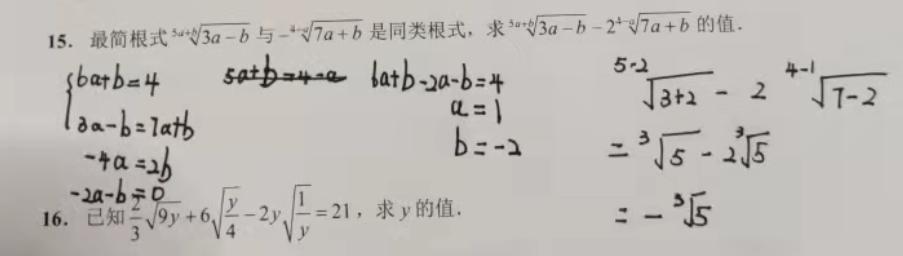 15. 最简根式 ⁵ᵃ⁺ᵇ√(3a-b) 与 -⁴⁻ᵃ√(7a+b) 是同类根式, 求 ⁵ᵃ⁺ᵇ√(3a-b) - 2 ⁴⁻ᵃ√(7a+b) 的值.
{6a+b=4
3a-b=7a+b
-4a=2b
-2a-b=0
5a+b=4-a
6a+b-2a-b=4
a=1
b=-2
⁵⁻²√(3+2) - 2 ⁴⁻¹√(7-2)
= ³√5 - 2³√5
= -³√5
16. 已知 2/3 √(9y) + 6√(y/4) - 2y√(1/y) = 21, 求 y 的值.